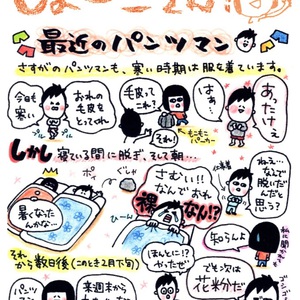 最近のパンツマン
さすがのパンツマンも、寒い時期は服を着ています。
今日も
寒い
プル
プル
おれの
毛皮を
とってくれ
毛皮って
これ?
それ!
もこもこ
パーカー
はぁ〜
あったけぇ
しかし
寝ている間に脱ぎ、そして朝…
暑くなった
んかな…
ポイ
ぐしゃ
さむい!!
なんでおれ
裸なん!?
ひーん
ほんとに!?
やったぜ
仕事着
ねぇ…
なんで
脱いだ
んだと
思う?
知らんよ
私に聞かれても
それから数日後(このとき2月下旬)
パンツ
マン
来週末
でも次は
花粉だ